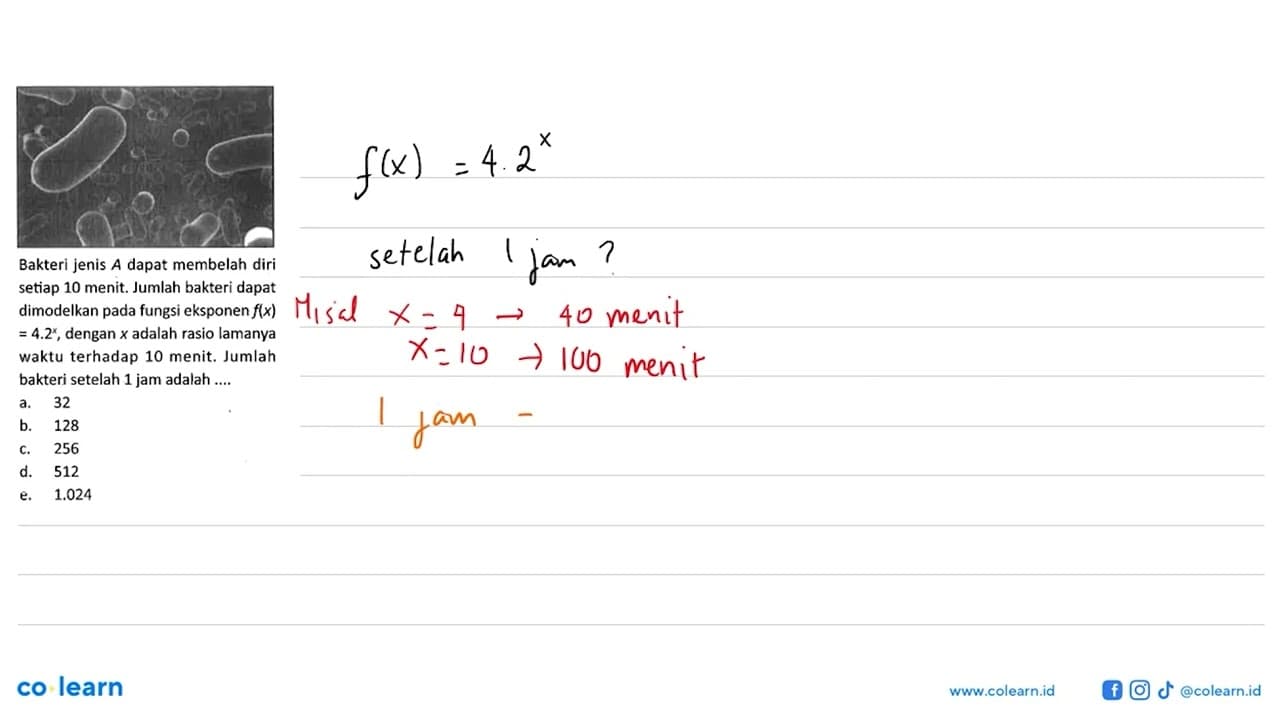 Bakteri jenis A dapat membelah diri
setiap 10 menit. Jumlah bakteri dapat
dimodelkan pada fungsi eksponen f(x)
= 4.2ˣ, dengan x adalah rasio lamanya
waktu terhadap 10 menit. Jumlah
bakteri setelah 1 jam adalah ....
a. 32
b. 128
c. 256
d. 512
e. 1.024
f(x) = 4.2ˣ
setelah 1 jam ?
Misal x = 4 → 40 menit
x = 10 → 100 menit
1 jam =
co·learn
www.colearn.id
@colearn.id